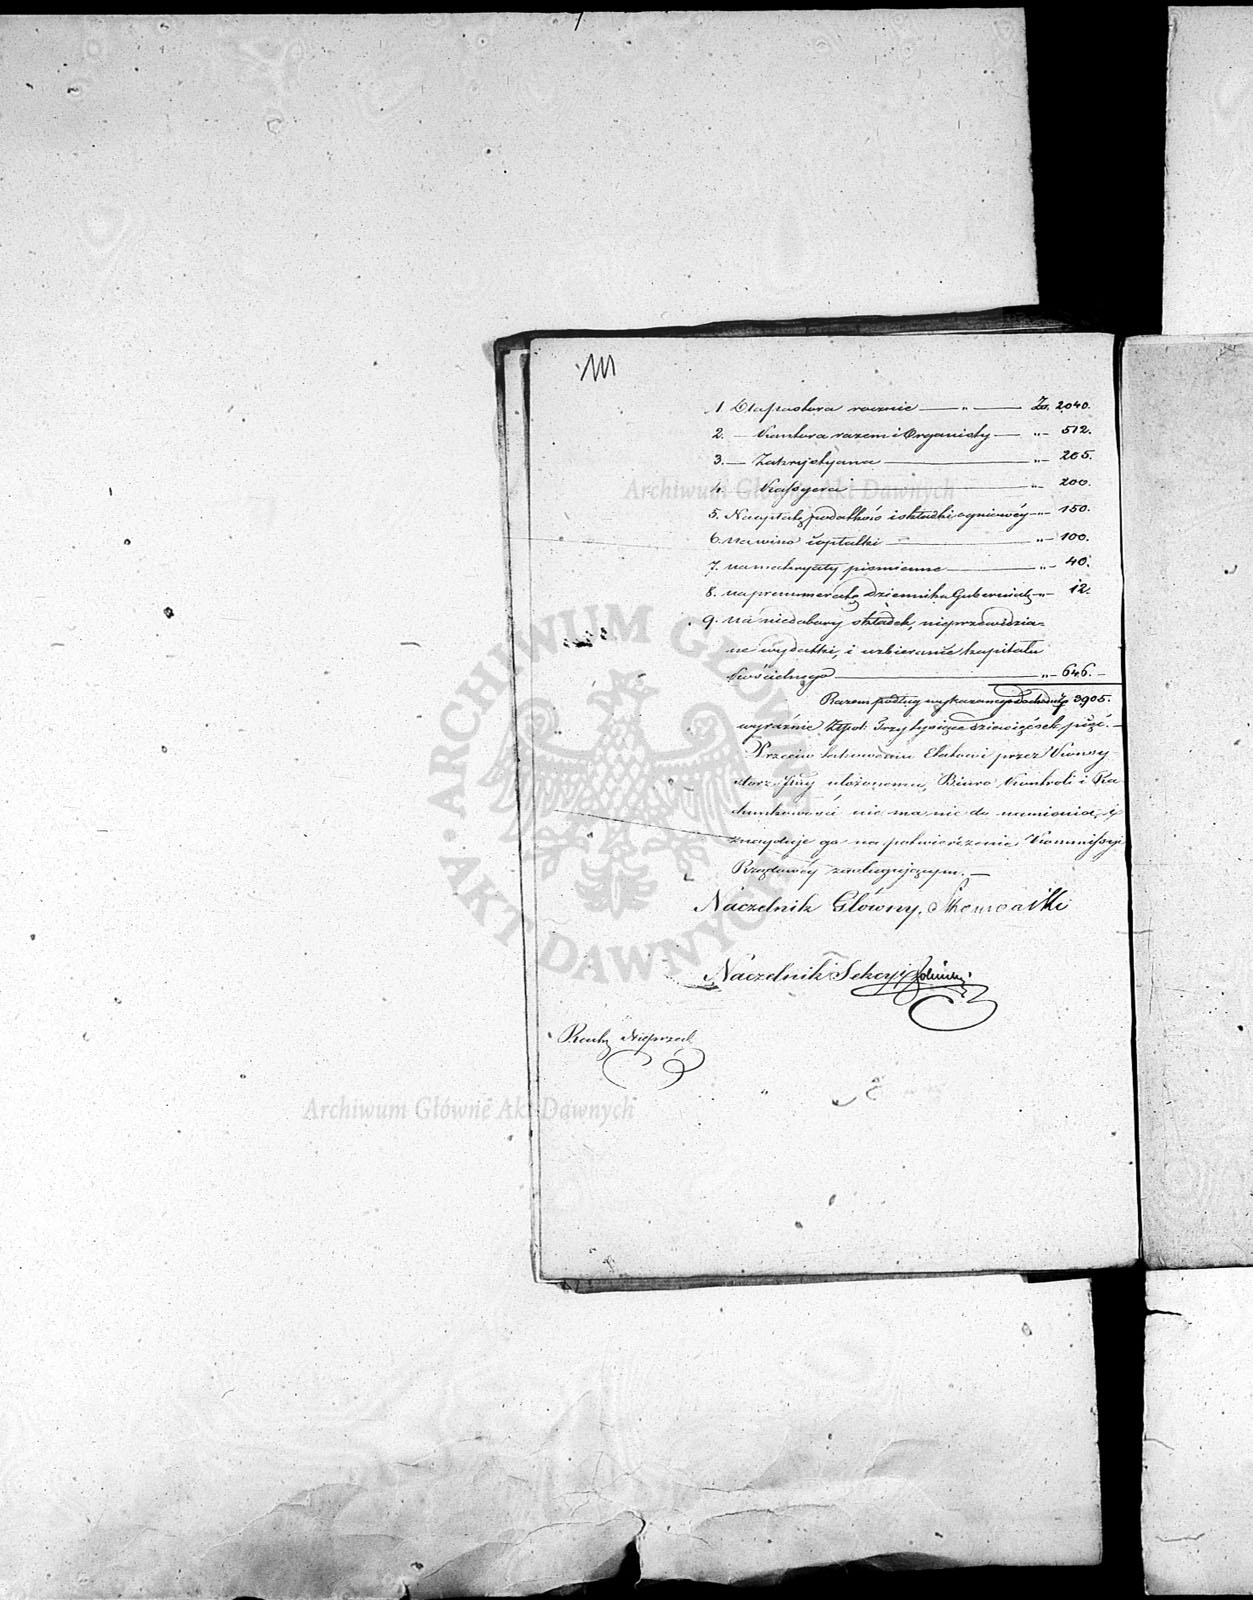 111
1. Dla pastora rocznie — „ — Zł. 2040.
2. — Kantora razem i Organisty — „ — 512.
3. — Zakrystyana — „ — 205.
4. — Kassyera — „ — 200.
5. Na opłatę podatków i składki ogniowéy — „ — 150.
6. na wino i opłatki — „ — 100.
7. na materyały piśmienne — „ — 40.
8. na prenumeratę Dziennika Gubernial: — „ — 12.
9. na niedobory składek, nieprzewidzia-
ne wydatki, i uzbieranie kapitału
kościelnego — „ — 646. —
Razem podług wykazanego dochodu Zł 3905.
wyraźnie Złpol: Trzy tysiące dziewięćset pięć. —
Przeciw takowemu Etatowi przez Konsy
storz ułożonemu, Biuro Kontroli i Ra
chunkowości nic ma nic do namienienia, i
znayduje go na potwierdzenie Kommissyi
Rządowéy zasługującym. —
Naczelnik Główny,
Naczelnik Sekcyi
Archiwum Główne Akt Dawnych
ARCHIWUM GŁÓWNE
AKT DAWNYCH
Archiwum Główne Akt Dawnych